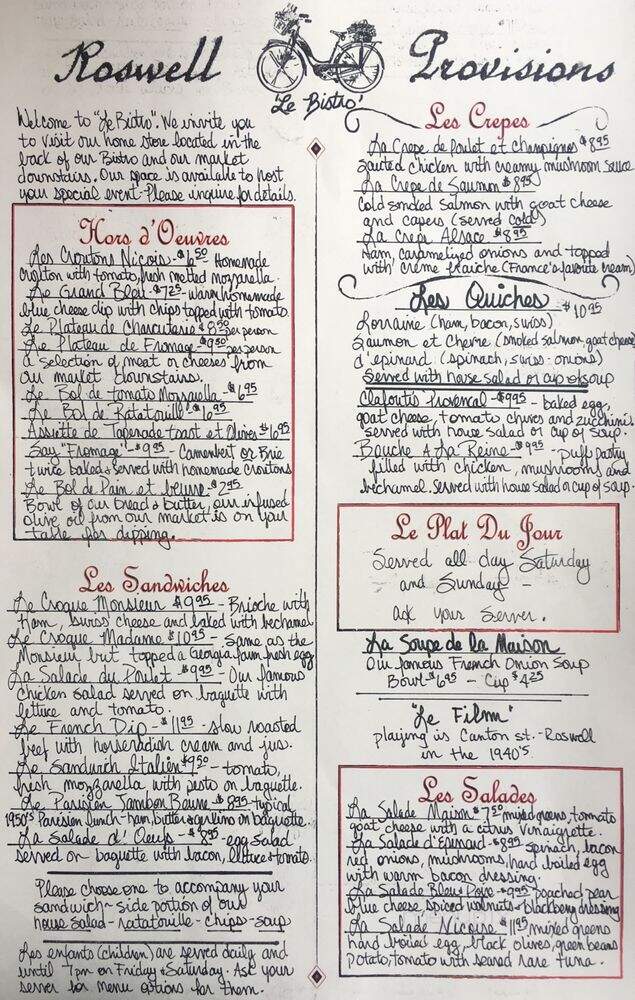 Roswell Provisions
Le Bistro'
Welcome to "Le Bistro". We invite you
to visit our home store located in the
back of our Bistro and our market
downstairs. Our space is available to host
your special event - Please inquire for details.
Hors d'Oeuvres
Les Croutons Nicois - $6.50 - Homemade
crouton with tomato, fresh melted mozzarella.
Le Grand Bleu - $7.25 - warm homemade
blue cheese dip with chips topped with tomato.
Le Plateau de Charcuterie $8.50 per person
Le Plateau de Fromage - $9.50 per person
a selection of meat or cheeses from
our market downstairs.
Le Bol de tomato Mozzarella - $6.95
Le Bol de Ratatouille $6.95
Assiette de Tapenade toast et Olives $6.95
Say "Fromage" - $9.95 - Camembert or Brie
twice baked & served with homemade croutons
Le Bol de Pain et beurre - $2.95
Bowl of our bread & butter, our infused
olive oil from our market is on your
table for dipping.
Les Sandwiches
Le Croque Monsieur $9.95 - Brioche with
Ham, swiss cheese and baked with bechamel
Le Croque Madame $10.95 - same as the
Monsieur but topped a Georgia farm fresh egg
La Salade du Poulet - $9.95 - Our famous
chicken salad served on baguette with
lettuce and tomato.
Le French Dip - $11.95 - slow roasted
beef with horseradish cream and jus.
Le Sandwich Italien $9.50 - tomato,
fresh mozzarella with pesto on baguette.
Le Parisien Jambon Beurre - $8.95 - typical
1950's Parisien lunch - ham, butter & gerkins on baguette.
La Salade d' Oeufs - $8.95 - egg salad
served on baguette with bacon, lettuce & tomato.
Please choose one to accompany your
sandwich ~ side portion of our
house salad - ratatouille - chips - soup
Les enfants (children) are served daily and
until 7pm on Friday & Saturday. Ask your
server for menu options for them.
Les Crepes
La Crepe de Poulet et champignon $8.95
sauteed chicken with creamy mushroom sauce
La Crepe de Saumon $8.95
Cold smoked salmon with goat cheese
and capers (served cold)
La Crepe Alsace $8.95
Ham, caramelized onions and topped
with creme fraiche (France's favorite cream)
Les Quiches $10.95
Lorraine (ham, bacon, swiss)
Saumon et Chevre (smoked salmon, goat cheese)
d'epinard (spinach, swiss - onions)
Served with house salad or cup of soup
Clafoutis Provencal - $9.95 - baked egg,
goat cheese, tomato, chives and zucchini
served with house salad or cup of soup.
Bouche A La Reine - $9.95 - puff pastry
filled with chicken, mushrooms and
bechamel. Served with house salad or cup of soup.
Le Plat Du Jour
Served all day Saturday
and Sunday -
ask your server.
La Soupe de la Maison
Our famous French Onion Soup
Bowl - $6.95 - Cup $4.25
"Le Film"
playing is Canton st. - Roswell
in the 1940's.
Les Salades
La Salade Maison $7.50 mixed greens, tomato
goat cheese with a citrus vinaigrette.
La Salade d'Epinard - $8.95 spinach, bacon
red onions, mushrooms, hard boiled egg
with warm bacon dressing.
La Salade Bleu & Poire - $9.95 poached pear
blue cheese, spiced walnuts - blackberry dressing
La Salade Nicoise $11.95 mixed greens
hard boiled egg, black olives, green beans
potato, tomato with seared rare tuna.